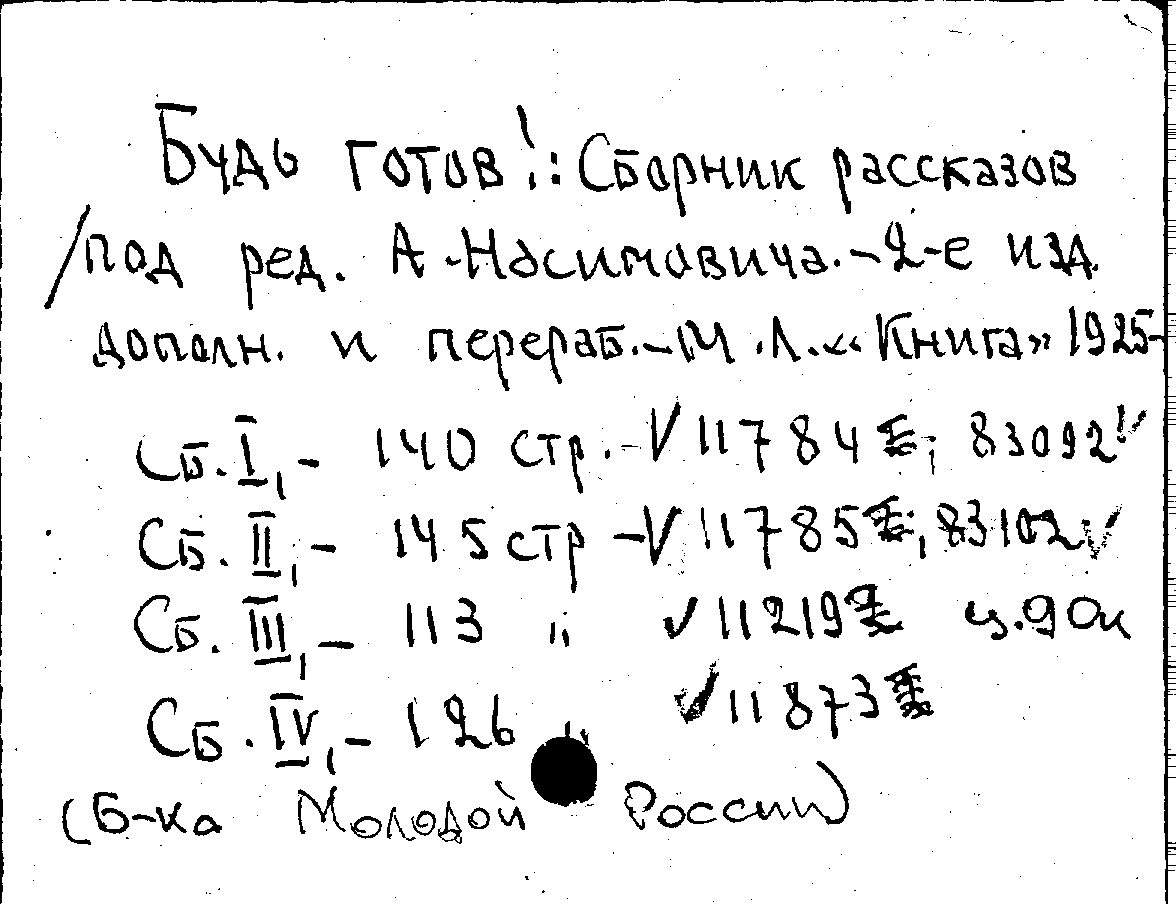 Будь готов!: Сборник рассказов
/под ред. А. Насимовича. - 2-е изд.
дополн. и перераб. - М.Л. «Книга» 1925-
Сб. I, - 140 стр. - V 11784; 83092 V
Сб. II, - 145 стр - V 11785; 83102 V
Сб. III, - 113 " V 11219 ц. 90к
Сб. IV, - 126 " V 11873
(Б-ка Молодой России)